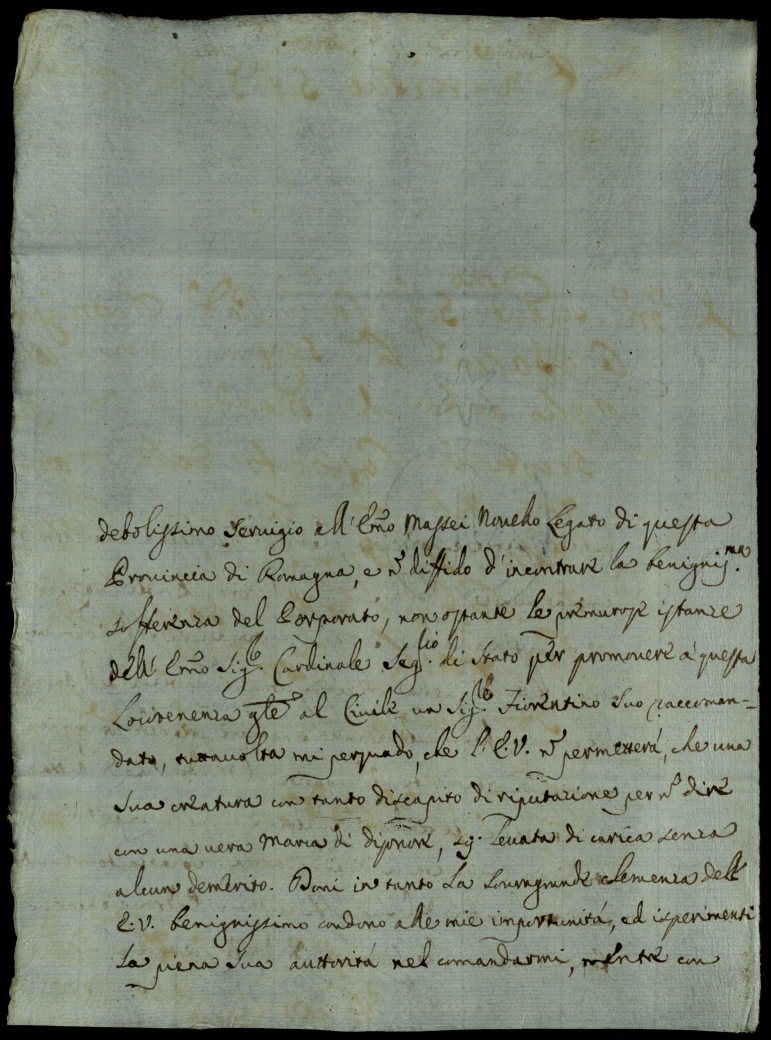 debolissimo servigio all'Emo Massei Novello Legato di questa
Provincia di Romagna, e nº diffido d'incontrare la benigniss.ma
sofferenza del Porporato, non ostante le premurose istanze
dell'Emo Sig.e Cardinale Seg.rio di Stato per promovere à questa
Louotenenza gle al Civile un Sig.re Fiorentino suo raccoman-
dato, tuttavolta mi persuado, che l'E.V. nº permetterá, che una
sua creatura con tanto discapito di riputazione per nº dire
con una vera marca di disonore, sij levata di carica senza
alcun demerito. Doni in tanto la sovragrande clemenza dell'
E.V. benignissimo condono alle mie importunitá, ed isperimenti
la piena sua auttoritá nel comandarmi, mentre con